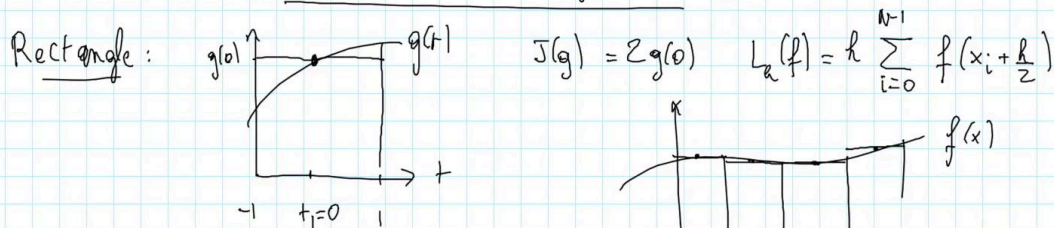 Rectangle: g(0) g(t) J(g) = 2g(0) L_h(f) = h ∑_{i=0}^{N-1} f(x_i + h/2)
f(x)
t
-1 t_1=0 1